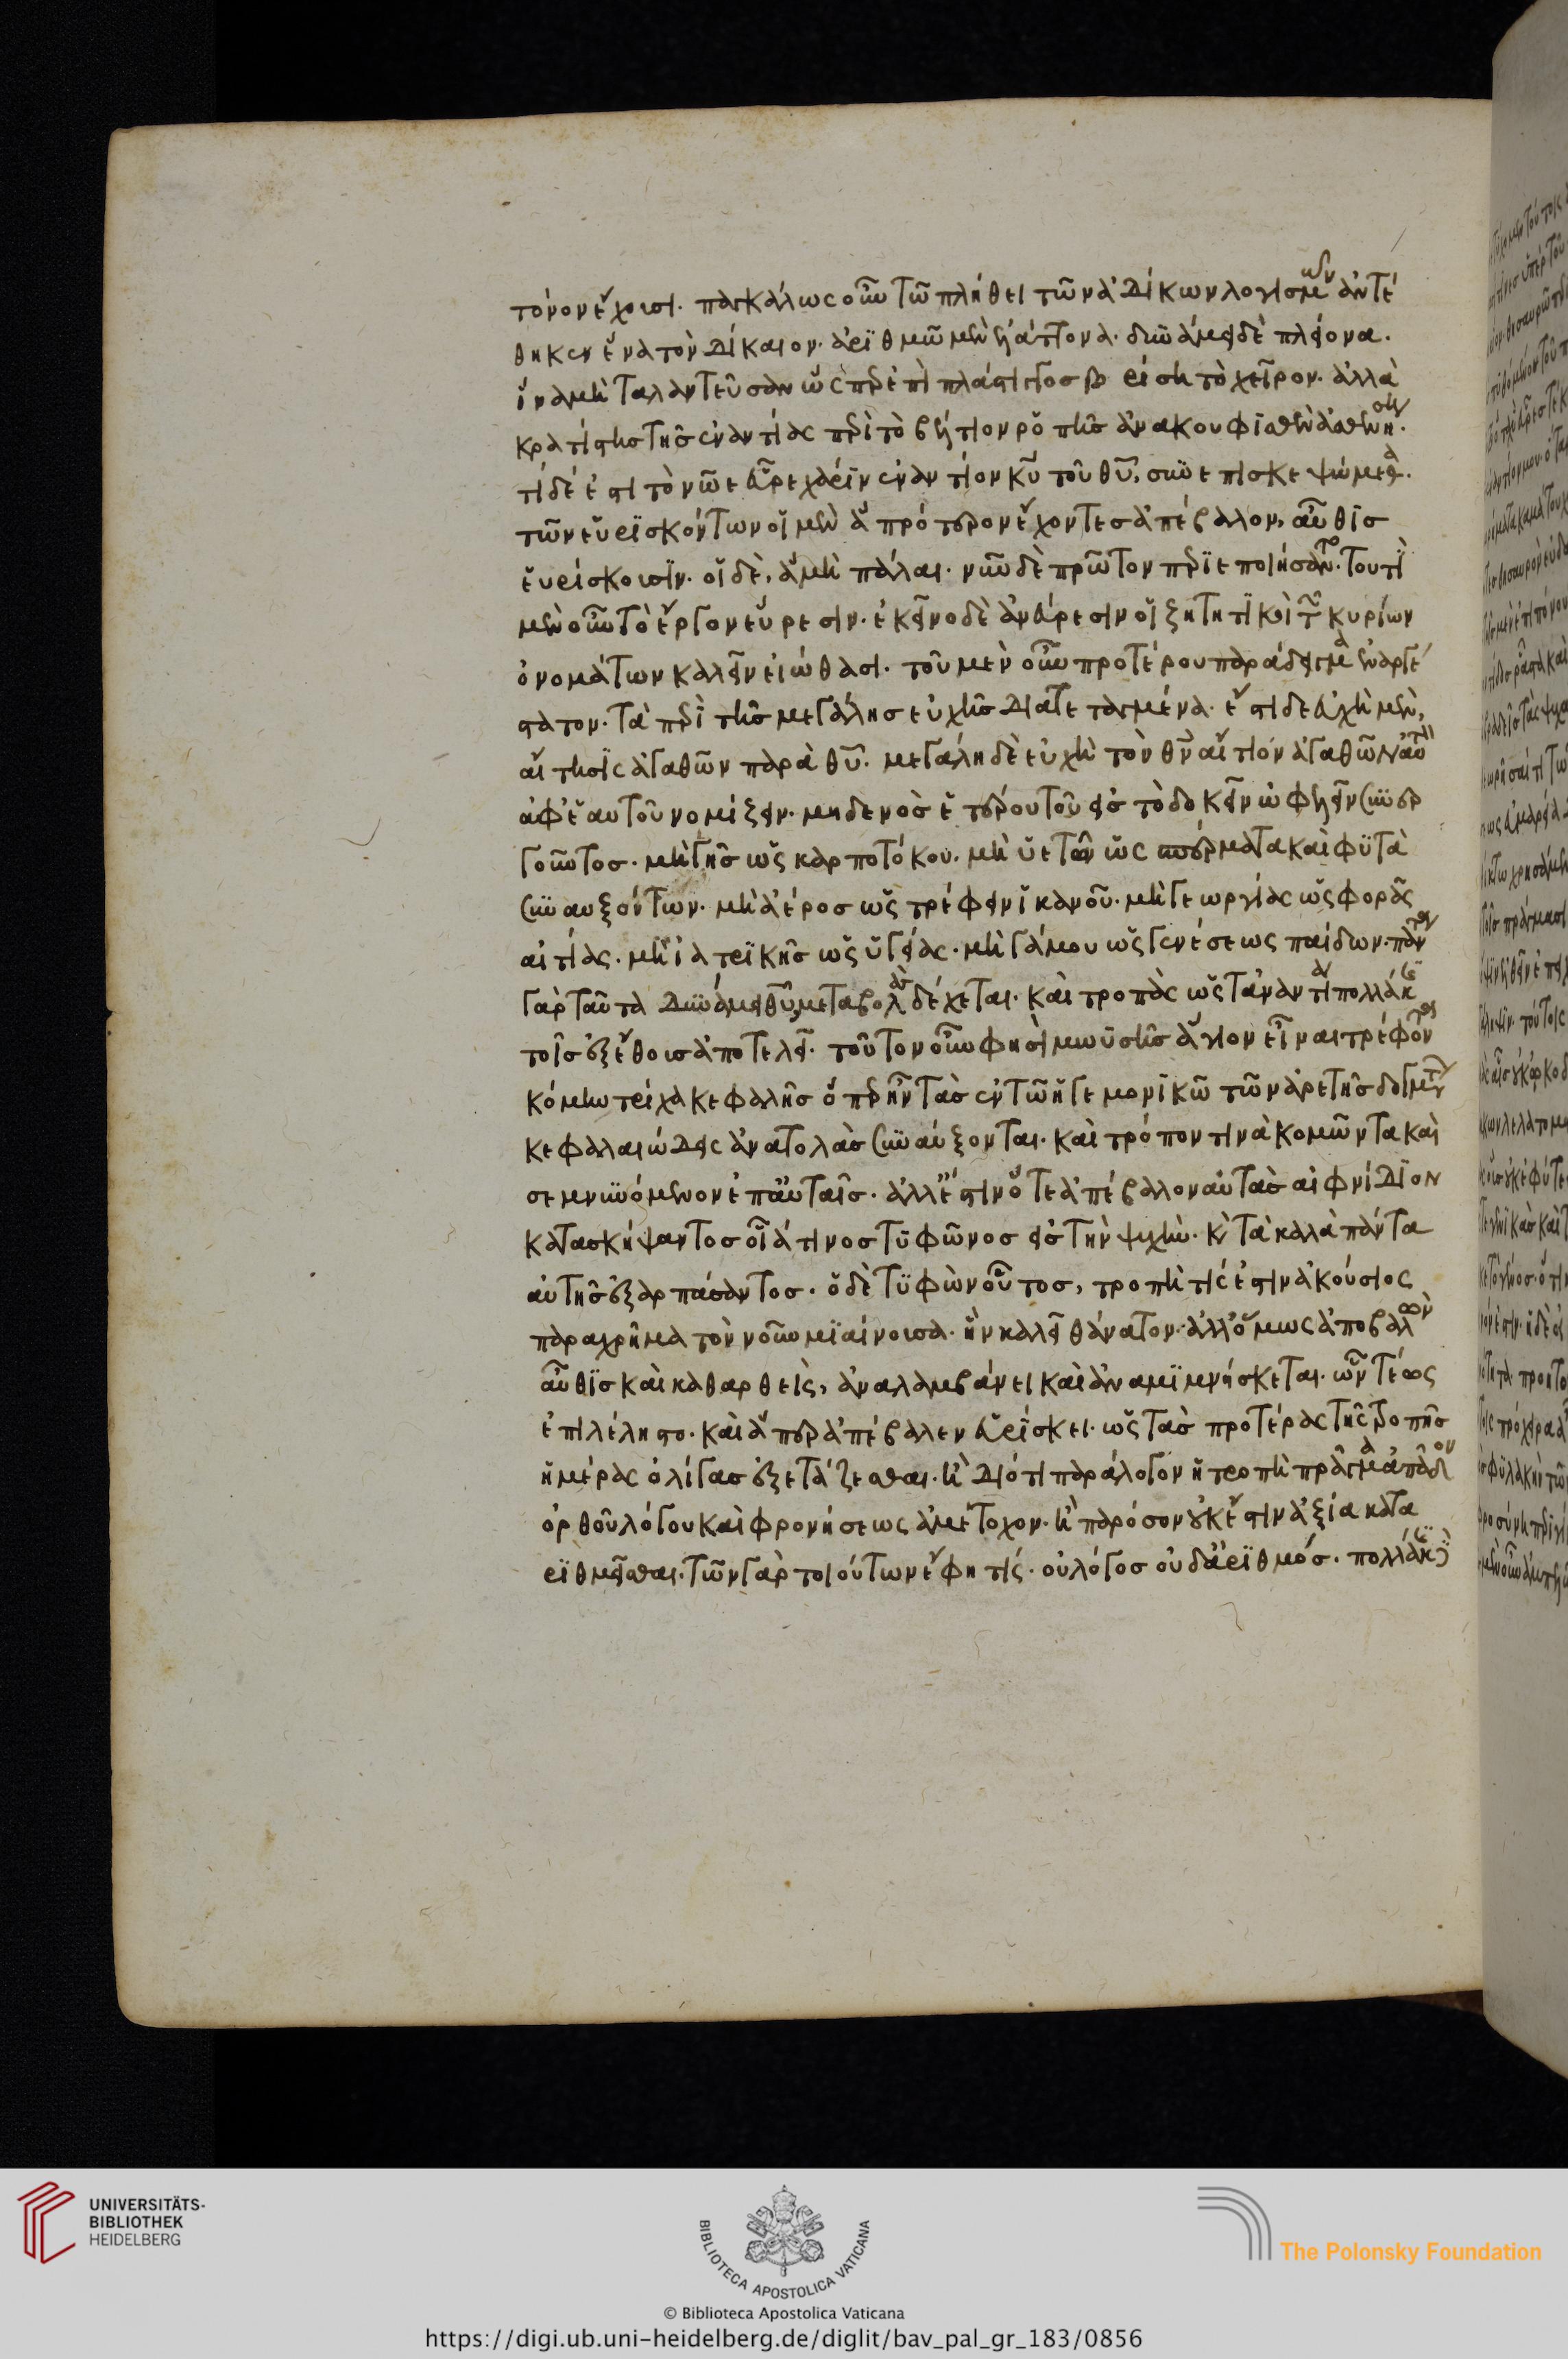 τόνον ἔχουσι. παγκάλως οὖν τῶ πλήθει τῶν ἀδίκων λογισμῶν ἀντέ
θηκεν ἕνα τὸν δίκαιον. ἀριθμῶ μὲν ἐλάττονα. δυνάμει δὲ πλείονα.
ἵνα μὴ ταλαντεῦσαν ὥσπερ ἐπὶ πλάστιγγος βρίση τὸ χεῖρον. ἀλλὰ
κρατίστης τῆς ἐναντίας περὶ τὸ βέλτιον ῥοπῆς ἀνακουφισθὲν ἀσθενήση.
τί δέ ἐστι τὸ νῶε εὗρε χάριν ἐναντίον κυ τοῦ θυ, συνεπισκεψώμεθα.
τῶν εὑρισκόντων οἱ μὲν ἃ πρότερον ἔχοντες ἀπέβαλον, αὖθις
εὑρίσκουσιν. οἱ δὲ, ἃ μὴ πάλαι. νῦν δὲ πρῶτον περιεποιήσαντο. τουτὶ
μὲν οὖν τὸ ἔργον εὕρεσιν. ἐκεῖνο δὲ ἀνεύρεσιν οἱ ζητητικοὶ τῶν κυρίων
ὀνομάτων καλεῖν εἰώθασι. τοῦ μὲν οὖν προτέρου παράδειγμα ἐναργέ
στατον. τὰ περὶ τῆς μεγάλης εὐχῆς διατεταγμένα. ἔστι δὲ εὐχὴ μὲν,
αἴτησις ἀγαθῶν παρὰ θυ. μεγάλη δὲ εὐχὴ τὸν θν αἴτιον ἀγαθῶν αὐτὸν
ἀφ' ἑαυτοῦ νομίζειν. μηδενὸς ἑτέρου τοῦ εἰς τὸ δοκεῖν ὠφελεῖν συνερ
γοῦντος. μὴ γῆς ὡς καρποτόκου. μὴ ὑετῶν ὡς σπέρματα καὶ φυτὰ
συναυξόντων. μὴ ἀέρος ὡς τρέφειν ἱκανοῦ. μὴ γεωργίας ὡς φορᾶς
αἰτίας. μὴ ἰατρικῆς ὡς ὑγείας. μὴ γάμου ὡς γενέσεως παίδων. πάντα
γὰρ ταῦτα δυνάμει θυ, μεταβολὰς δέχεται. καὶ τροπὰς ὡς τἀναντία πολλάκις
τοῖς ἐξ ἔθους ἀποτελεῖ. τοῦτον οὖν φησὶ μωυσῆς ἅγιον εἶναι τρέφοντα
κόμην τρίχα κεφαλῆς ὅπερ ἦν τὰς ἐν τῶ ἡγεμονικῶ τῶν ἀρετῆς δογμάτων
κεφαλαιώδεις ἀνατολὰς συναύξονται. καὶ τρόπον τινὰ κομῶντα καὶ
σεμνυνόμενον ἐπ' αὐταῖς. ἀλλ' ἔστιν ὅτε ἀπέβαλον αὐτὰς αἰφνίδιον
κατασκήψαντος οἷά τινος τυφῶνος εἰς τὴν ψυχὴν. κ τὰ καλὰ πάντα
αὐτῆς ἐξαρπάσαντος. ὁ δὲ τυφὼν οὗτος, τροπὴ τίς ἐστιν ἀκούσιος
παραχρῆμα τὸν νοῦν μιαίνουσα. ἣν καλεῖ θάνατον. ἀλλ' ὅμως ἀποβαλὼν
αὖθις καὶ καθαρθεὶς, ἀναλαμβάνει καὶ ἀναμιμνήσκεται. ὧν τέως
ἐπιλέληστο. καὶ ἅπερ ἀπέβαλεν εὑρίσκει. ὡς τὰς προτέρας τῆς τροπῆς
ἡμέρας ὀλίγας ἐξετάζεσθαι. ἢ διότι παράλογον ἡ τροπὴ πρᾶγμα ἀπᾶδον
ὀρθοῦ λόγου καὶ φρονήσεως ἀμέτοχον. ἢ παρόσον οὐκ ἔστιν ἀξία κατα
ριθμεῖσθαι. τῶν γὰρ τοιούτων ἔφη τίς. οὐ λόγος οὐδ' ἀριθμός. πολλάκις
UNIVERSITÄTS-
BIBLIOTHEK
HEIDELBERG
BIBLIOTECA APOSTOLICA VATICANA
The Polonsky Foundation
© Biblioteca Apostolica Vaticana
https://digi.ub.uni-heidelberg.de/diglit/bav_pal_gr_183/0856